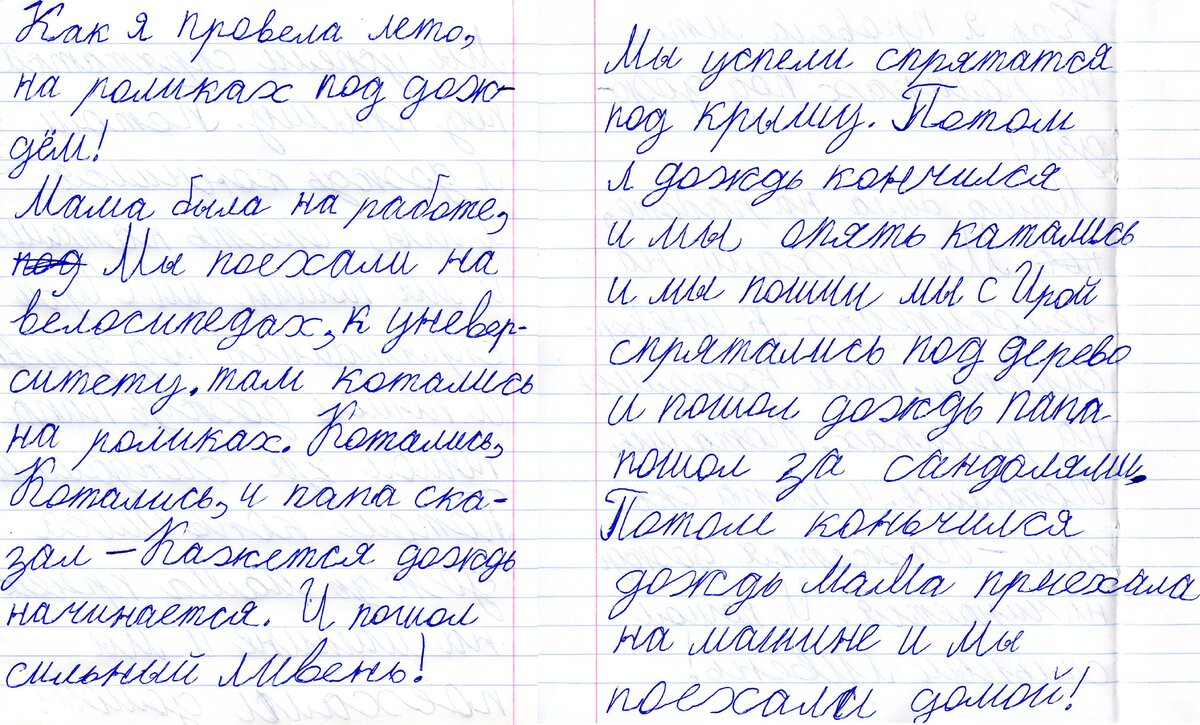 Как я провела лето,
на роликах под дож-
дём!
Мама была на работе,
под Мы поехали на
велосипедах, к уневер-
ситету. там котались
на роликах. Котались,
Котались, и папа ска-
зал – Кажется дождь
начинается. И пошол
сильный ливень!
Мы успели спрятатся
под крышу. Потом
л дождь кончился
и мы опять катались
и мы пошли мы с Ирой
спрятались под дерево
и пошол дождь папа
пошол за сандолями.
Потом коньчился
дождь мама приехала
на машине и мы
поехали домой!